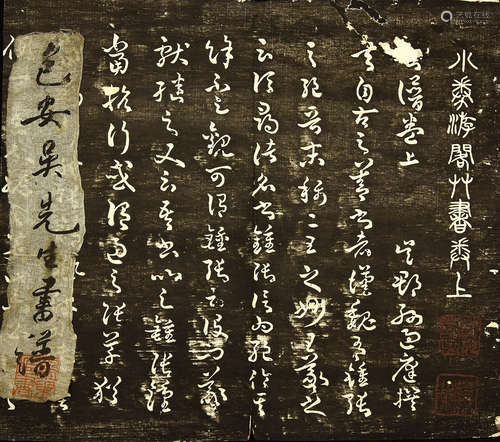 小倦游閣艸書卷上
書譜卷上 吳郡孫過庭撰
夫自古之善書者漢魏有鍾張
之絕晉末稱二王之妙王羲之
云頃尋諸名書鍾張信為絕倫其
餘不足觀可謂鍾張云沒而羲
獻繼之又云吾書比之鍾張鍾
當抗行或謂過之張草猶
包安吳先生書譜